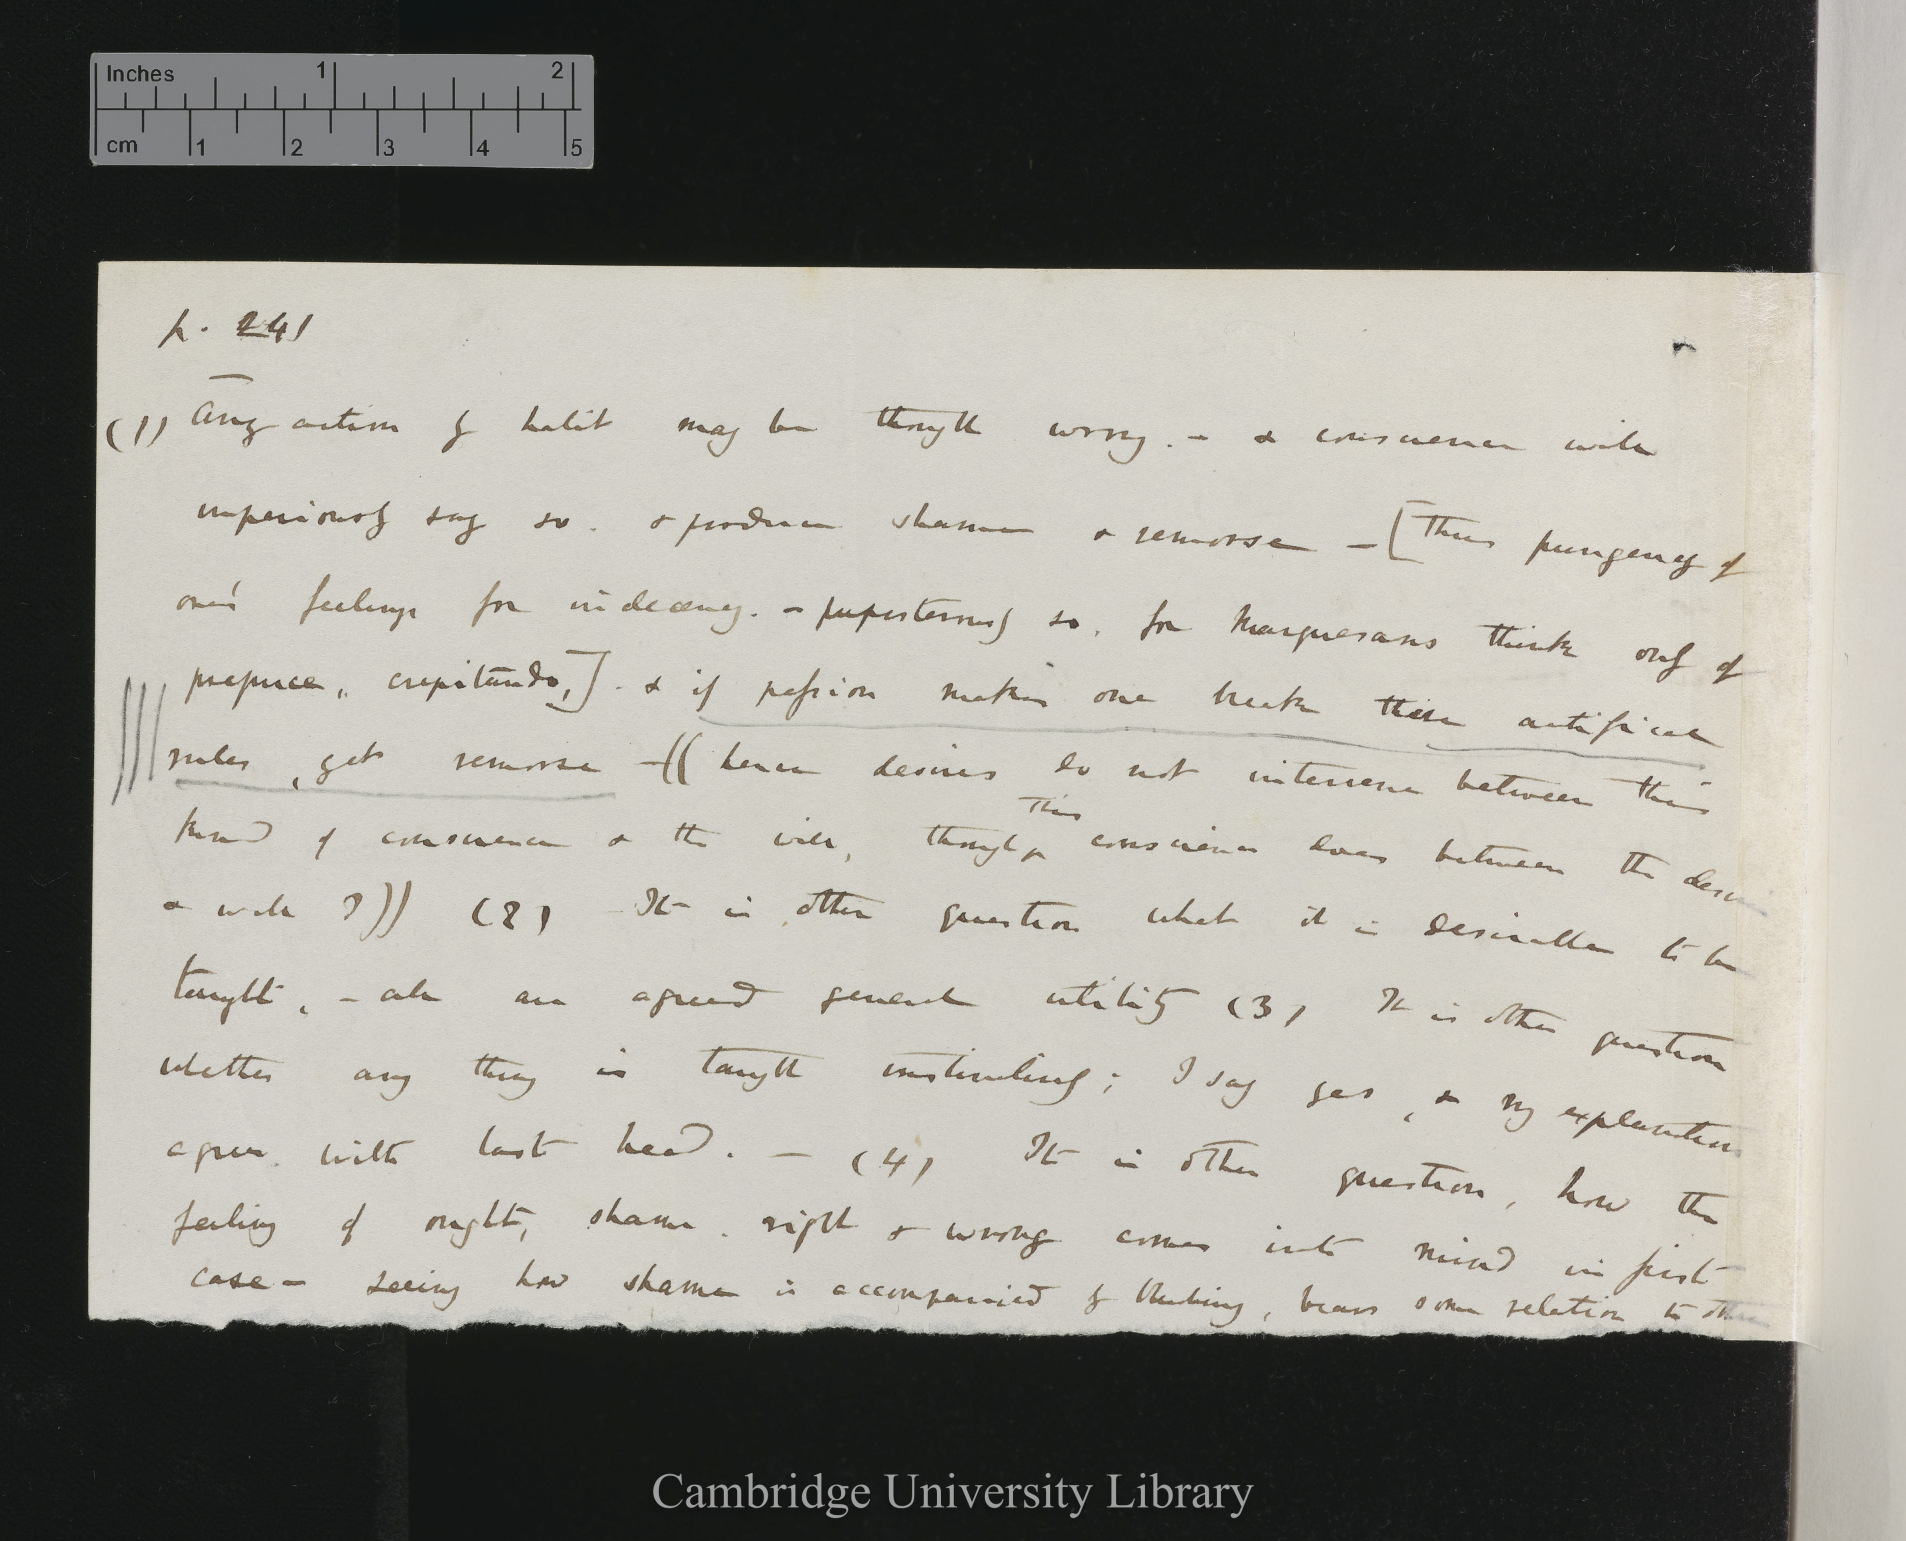 Inches 1 2
cm 1 2 3 4 5
p. 241
(1) Any action of habit may be thought wrong. – & conscience will
imperiously say so. & produce shame & remorse – [Thus pungency of
one's feelings for indecency. – preposterously so, for Marquesans think only of
prepuce, crepitando,] . & if passion makes one break these artificial
rules, get remorse – ((hence desires do not intervene between this
kind of conscience & the will, though this conscience does between the desire
& will?)) (2) It is other question what it is desirable to be
taught, – all are agreed general utility (3) It is other question
whether any thing is taught instinctively; I say yes, & my explanation
agree with last head. – (4) It is other question, how the
feeling of ought, shame, right & wrong comes into mind in first
case – seeing how shame is accompanied by blushing, bears some relation to other
Cambridge University Library